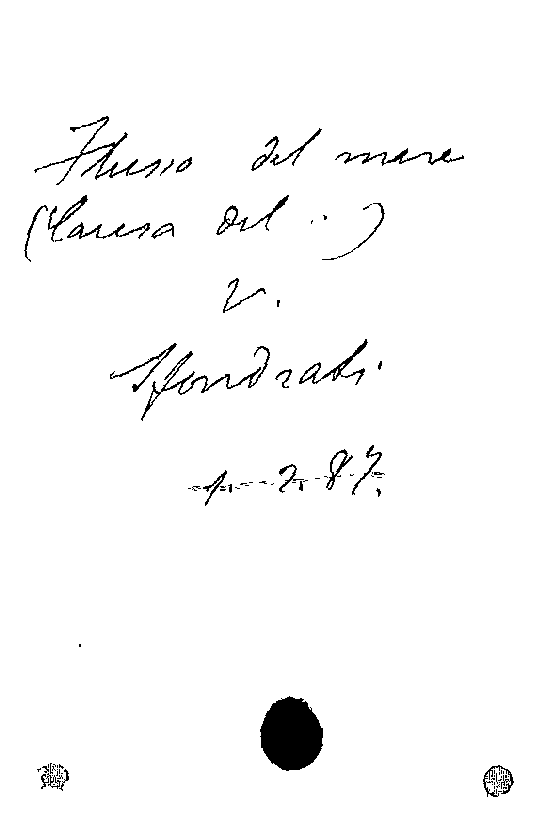 Flusso del mare
(Causa del ..)
v.
Sfondrati.
1. 2. 87.